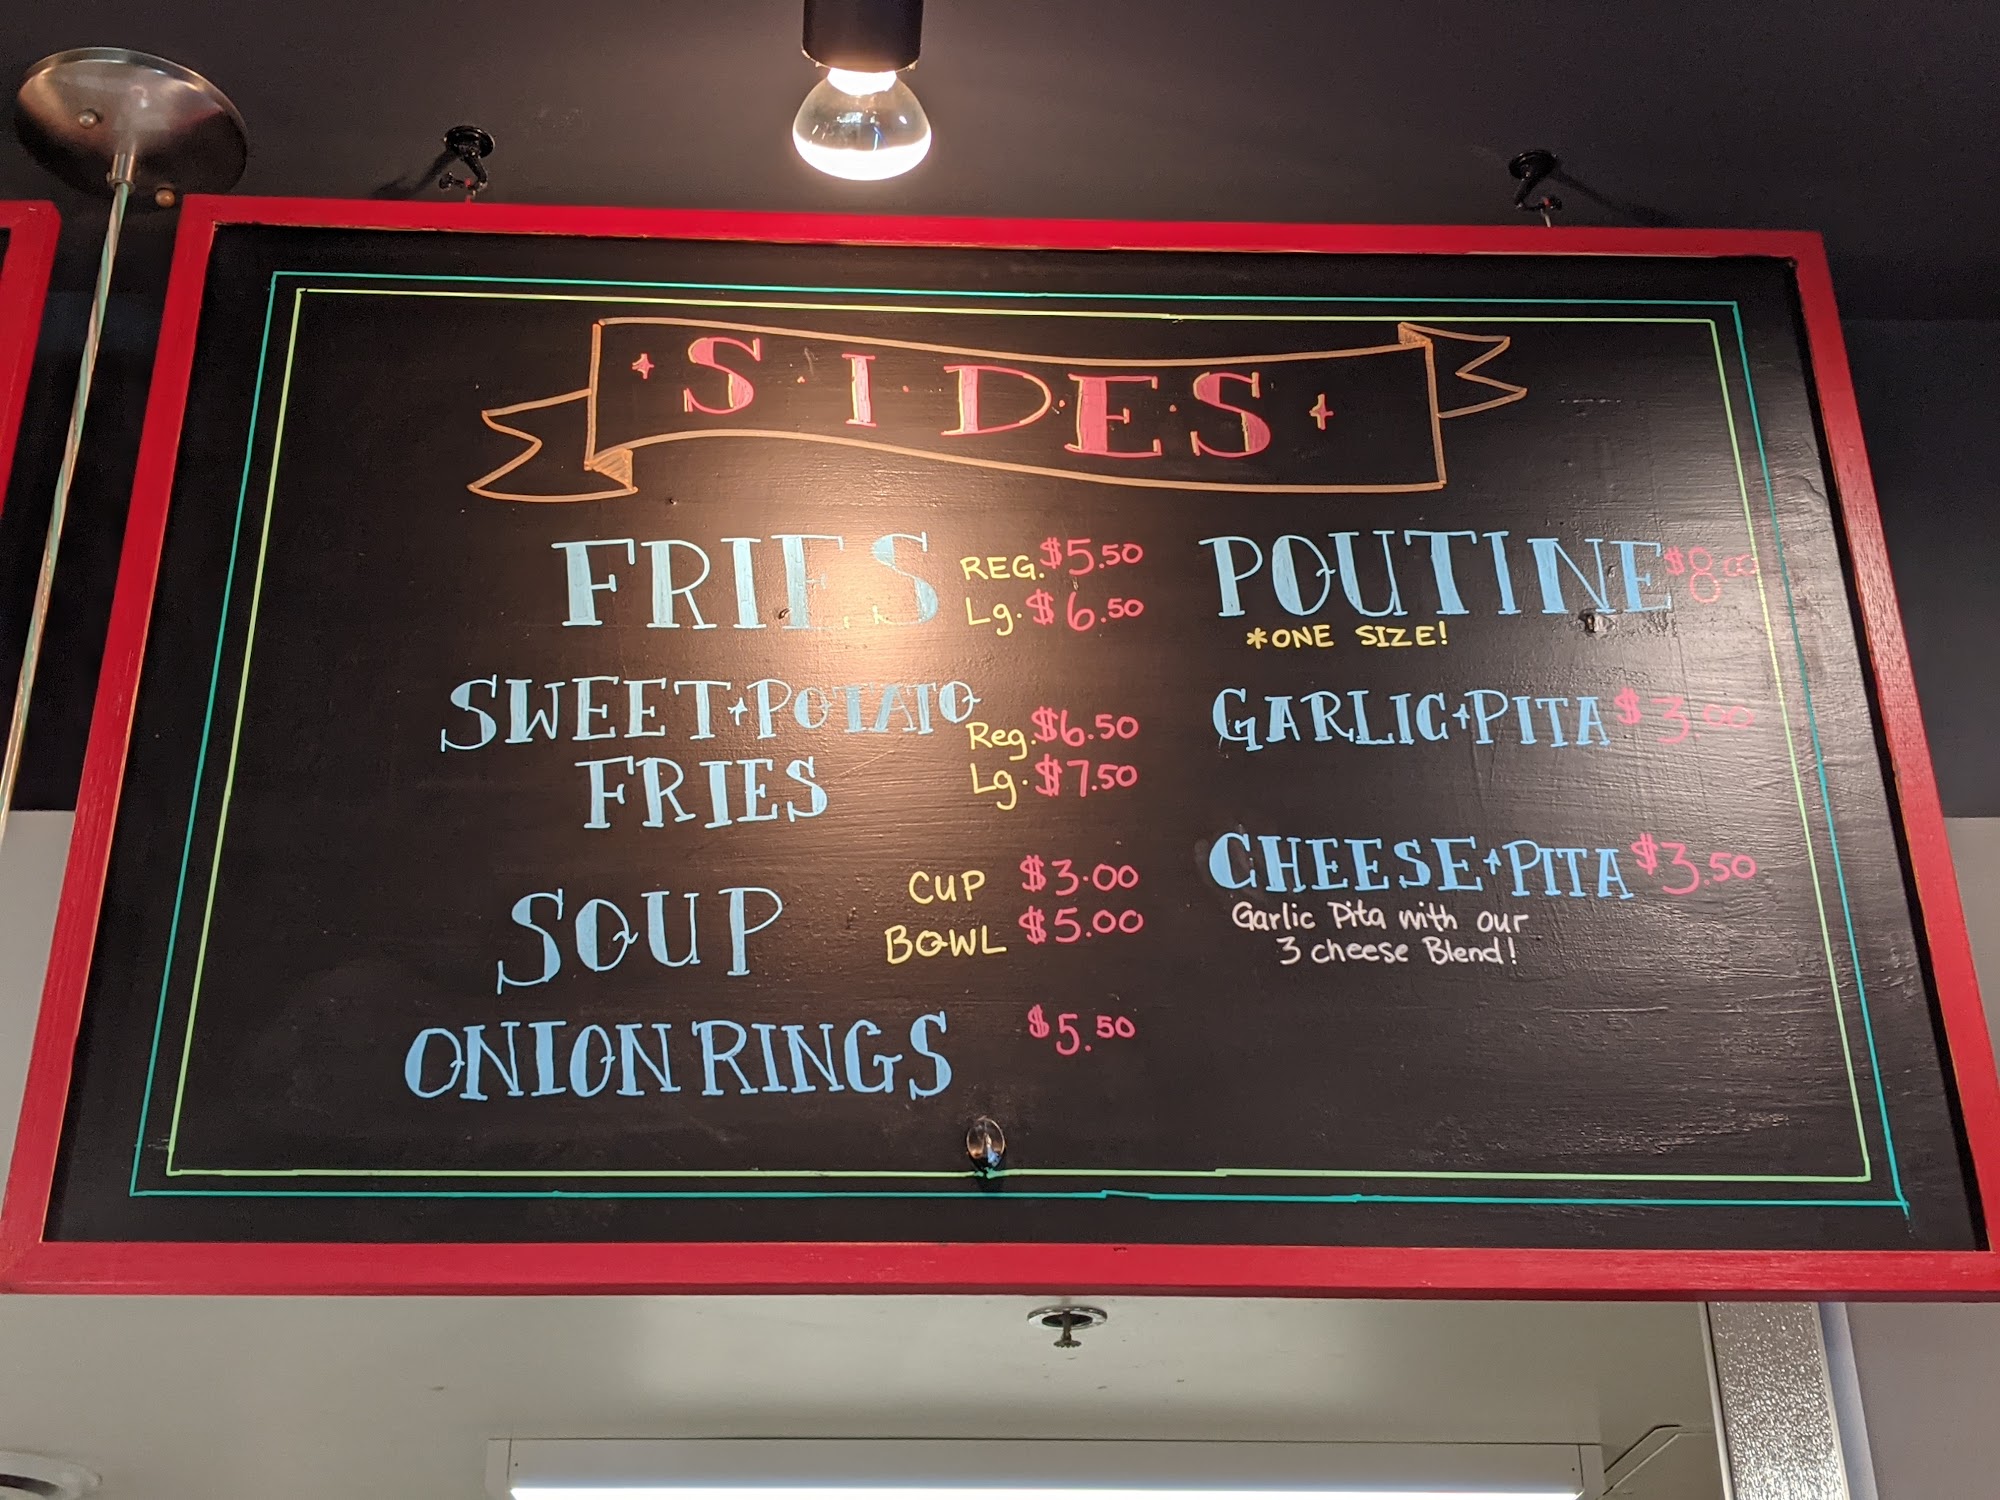 S.I.D.E.S
FRIES REG. $5.50
Lg. $6.50
SWEET POTATO
FRIES Reg. $6.50
Lg. $7.50
SOUP CUP $3.00
BOWL $5.00
ONION RINGS $5.50
POUTINE $8.00
*ONE SIZE!
GARLIC PITA $3.00
CHEESE PITA $3.50
Garlic Pita with our
3 cheese Blend!